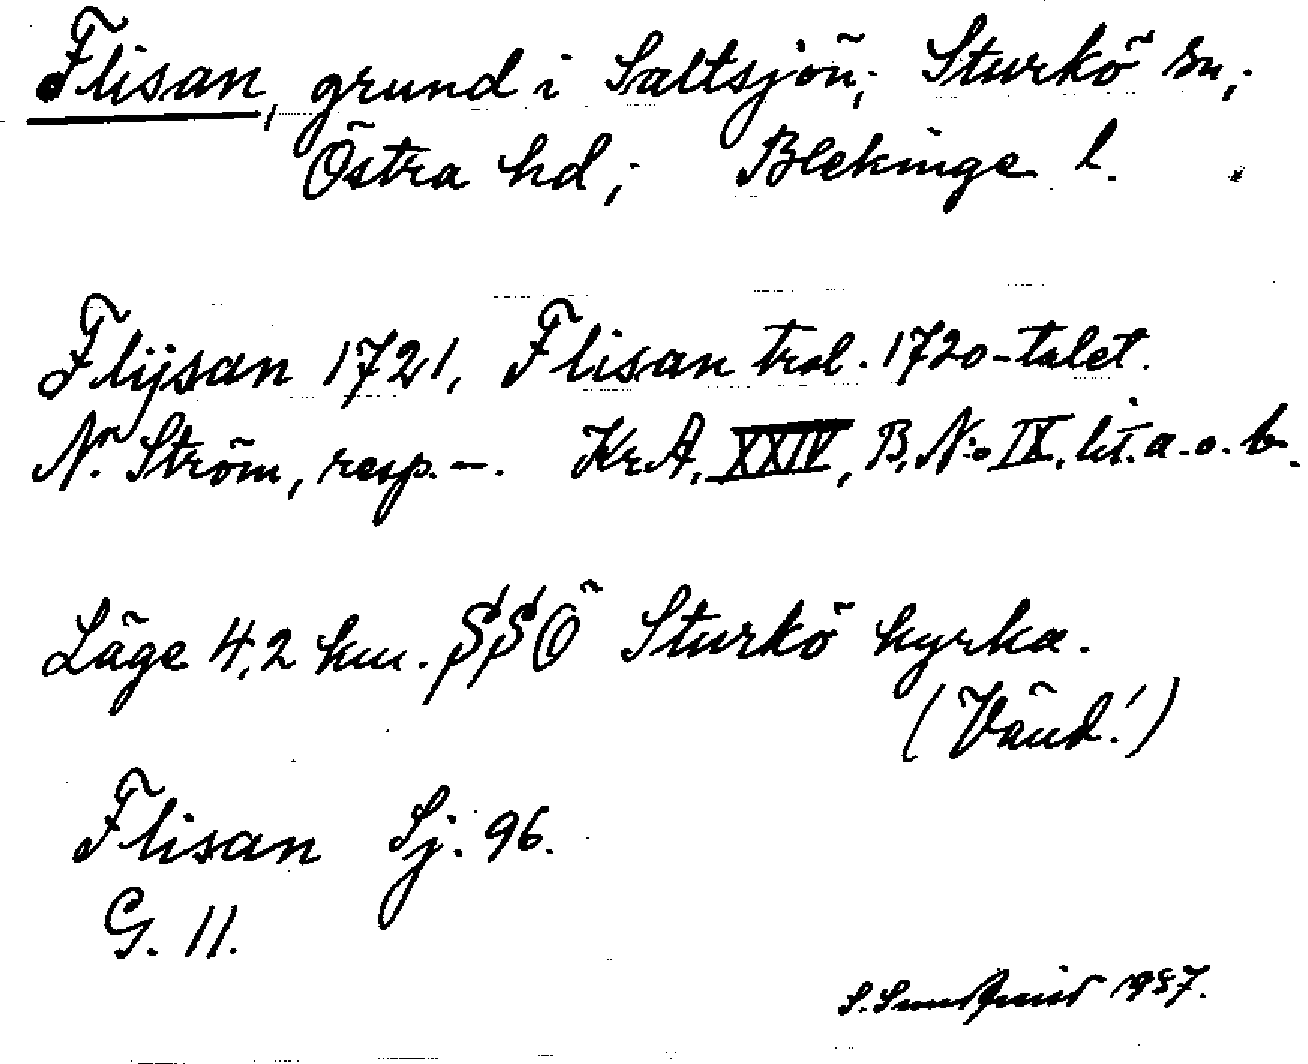 Flisan, grund i Saltsjön; Sturkö sn;
Östra hd; Blekinge l.
Flijsan 1721, Flisan trol. 1720-talet.
N. Ström, resp. –. KrA, XXIV, B, N:o IX, lit. a. o. b.
Läge 4,2 km. SSÖ Sturkö kyrka.
(Vänd!)
Flisan Sj. 96.
G. 11.
S. Sundqvist 1957.